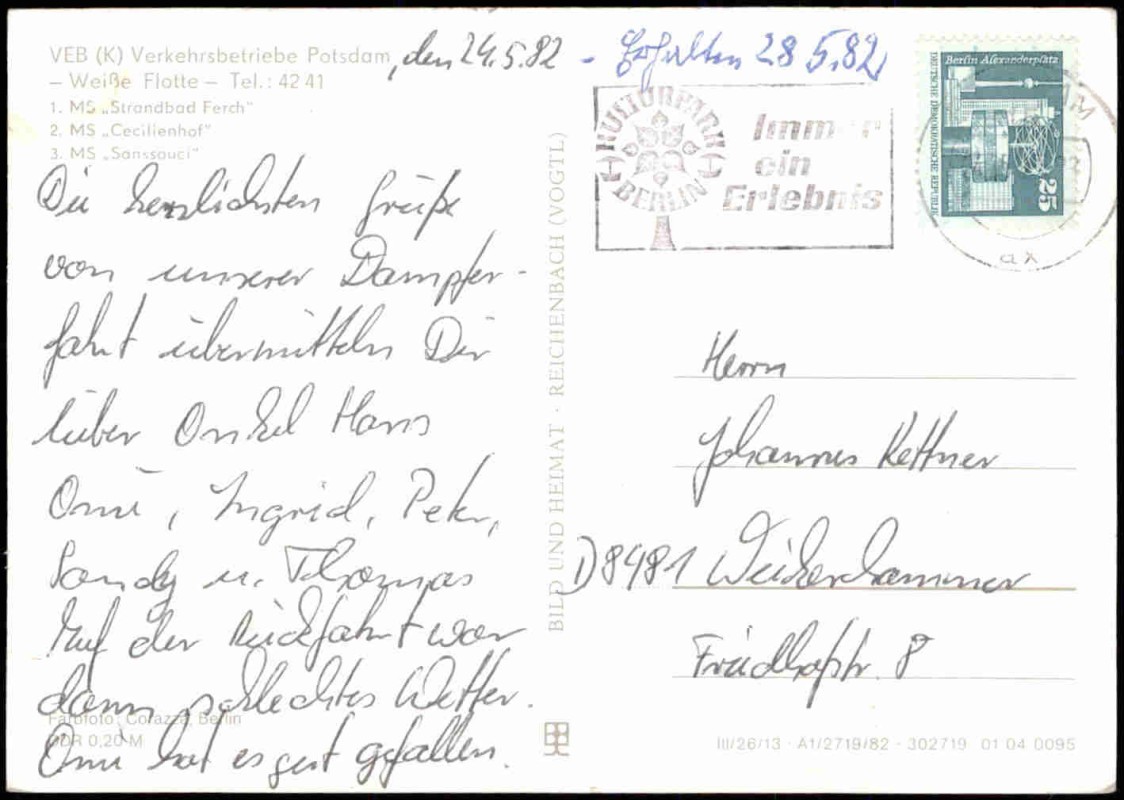 VEB (K) Verkehrsbetriebe Potsdam, den 24.5.82 - Erhalten 28 5.82
– Weiße Flotte – Tel.: 42 41
1. MS „Strandbad Ferch"
2. MS „Cecilienhof"
3. MS „Sanssouci"
Die herzlichsten Grüße
von unserer Dampfer-
fahrt übermitteln Dir
lieber Onkel Hans
Omi, Ingrid, Peter,
Sandy u. Thomas
Auf der Rückfahrt war
dann schlechtes Wetter.
Omi hat es gut gefallen.
Farbfoto: Corazza, Berlin
DDR 0,20 M
BILD UND HEIMAT · REICHENBACH (VOGTL)
KULTURPARK
BERLIN
Immer
ein
Erlebnis
Berlin Alexanderplatz
DEUTSCHE DEMOKRATISCHE REPUBLIK
25
ax
Herrn
Johannes Kettner
D8481 Weiherhammer
Friedhofstr. 8
III/26/13 · A1/2719/82 · 302719 01 04 0095